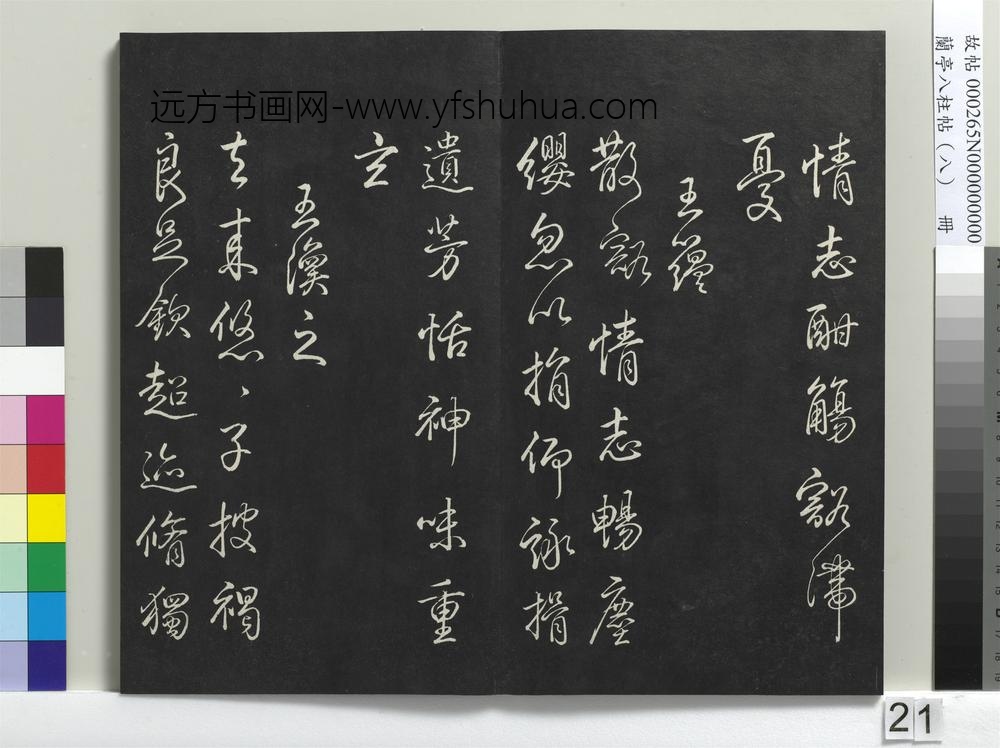 远方书画网-www.yfshuhua.com
故帖 000265N000000000
蘭亭八柱帖(八) 冊
情志酣觴豁滯
憂
王蘊
散豁情志暢塵
纓忽以捐仰詠挹
遺芳怡神味重
玄
王渙之
去來悠〻子披褐
良足欽超迹脩獨
21